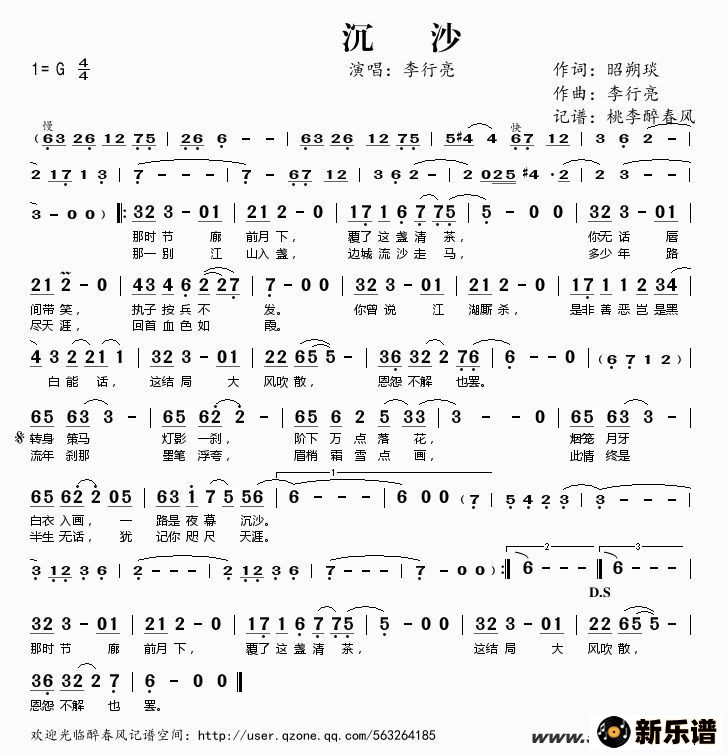 沉 沙
1=G 4/4 演唱：李行亮 作词：昭朔琰
作曲：李行亮
记谱：桃李醉春风
慢 快
( 63 26 12 75 | 26 6 - - | 63 26 12 75 | 5#4 4 67 12 | 3 6 2 - |
2 17 1 3 | 7 - - - | 7 - 67 12 | 3 6 2 - | 2 025 #4 · 2 | 2 3 - - |
3 - 00 ) ‖: 32 3 - 01 | 21 2 - 0 | 17 1 6 7 75 | 5 - 0 0 | 32 3 - 01 |
那时 节 廊 前月 下， 覆了 这 盏 清 茶， 你无 话 唇
那一 别 江 山入 盏， 边城 流 沙 走 马， 多少 年 路
21 2 - 0 | 43 4 6 2 27 | 7 - 0 0 | 32 3 - 01 | 21 2 - 0 | 17 1 1 2 34 |
间带 笑， 执子 按 兵 不 发。 你曾 说 江 湖厮 杀， 是非 善 恶 岂 是黑
尽天 涯， 回首 血 色 如 霞。
4 3 2 21 1 | 32 3 - 01 | 22 65 5 - | 36 32 2 76 | 6 - 0 0 | ( 6 7 1 2 |
白 能 话， 这结 局 大 风吹 散， 恩怨 不解 也 罢。
65 63 3 - | 65 62 2 - | 65 6 2 5 33 | 3 - - 0 | 65 63 3 - |
转身 策马 灯影 一刹， 阶下 万 点 落 花， 烟笼 月牙
流年 刹那 墨笔 浮夸， 眉梢 霜 雪 点 画， 此情 终是
1
65 62 2 05 | 63 1 75 56 | 6 - - - | 6 0 0 ( 7 | 5 4 2 3 | 3 - - - |
白衣 入画， 一 路是 夜 幕 沉沙。
半生 无话， 犹 记你 咫 尺 天涯。
2 3
3 12 3 6 | 3 12 1 2 | 7 - - - | 7 - - - | 7 - 0 0 ) :‖ 6 - - ‖ 6 - - |
D.S
32 3 - 01 | 21 2 - 0 | 17 1 6 7 75 | 5 - 0 0 | 32 3 - 01 | 22 65 5 - |
那时 节 廊 前月 下， 覆了 这 盏 清 茶， 这结 局 大 风吹 散，
36 32 2 7 | 6 - 0 ‖
恩怨 不解 也 罢。
欢迎光临醉春风记谱空间：http://user.qzone.qq.com/563264185
www. 新乐谱